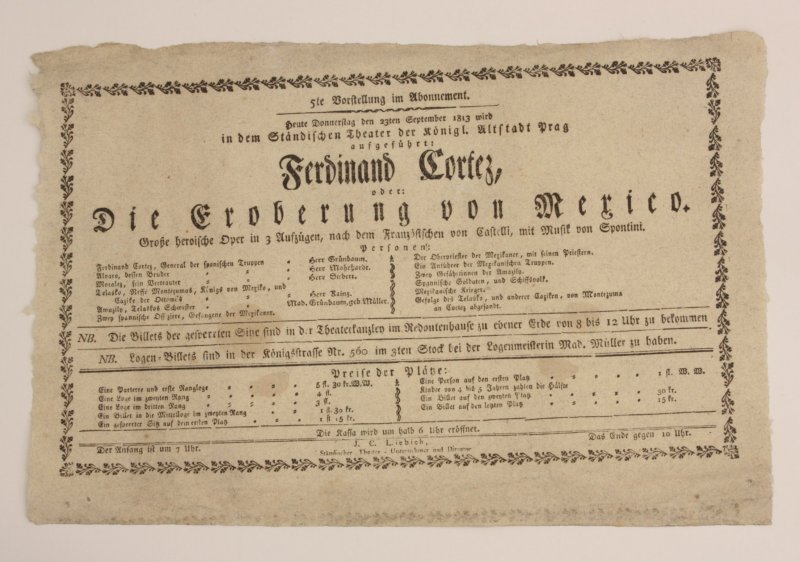 5te Vorstellung im Abonnement.
Heute Donnerstag den 23ten September 1813 wird
in dem Ständischen Theater der Königl. Altstadt Prag
aufgeführt:
Ferdinand Cortez,
oder:
Die Eroberung von Mexico.
Große heroische Oper in 3 Aufzügen, nach dem Französischen von Castelli, mit Musik von Spontini.
Personen:
Ferdinand Cortez, General der spanischen Truppen Herr Grünbaum.
Alvaro, dessen Bruder Herr Mohrhardt.
Moralez, sein Vertrauter Herr Siebert.
Telasko, Neffe Montezumas, Königs von Mexiko, und
Cazike der Ottomis Herr Kainz.
Amazily, Telaskos Schwester Mad. Grünbaum, geb. Müller.
Zwey spanische Offiziere, Gefangene der Mexikaner.
Der Oberpriester der Mexikaner, mit seinen Priestern.
Ein Anführer der Mexikanischen Truppen.
Zwey Gefährtinnen der Amazily.
Spanische Soldaten, und Schiffsvolk.
Mexikanische Krieger.
Gefolge des Telasko, und anderer Caziken, von Montezuma
an Cortez abgesandt.
NB. Die Billets der gesperrten Sitze sind in der Theaterkanzley im Redoutenhause zu ebener Erde von 8 bis 12 Uhr zu bekommen
NB. Logen-Billets sind in der Königsstrasse Nr. 560 im 3ten Stock bei der Logenmeisterin Mad. Müller zu haben.
Preise der Plätze:
Eine Parterre und erste Rangloge 5 fl. 30 kr. W.W.
Eine Loge im zweyten Rang 4 fl.
Eine Loge im dritten Rang 3 fl.
Ein Billet in die Mittelloge im zweyten Rang 1 fl. 30 kr.
Ein gesperrter Sitz auf dem ersten Platz 1 fl. 15 kr.
Eine Person auf den ersten Platz 1 fl. W. W.
Kinder von 4 bis 5 Jahren zahlen die Hälfte
Ein Billet auf den zweyten Platz 30 kr.
Ein Billet auf den letzten Platz 15 kr.
Die Kassa wird um halb 6 Uhr eröffnet.
Der Anfang ist um 7 Uhr.
Das Ende gegen 10 Uhr.
J. C. Liebich,
Ständischer Theater-Unternehmer und Director